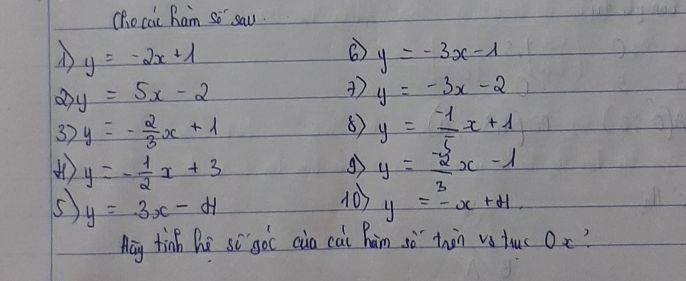 Cho các hàm số sau.
1) y = -2x+1
2) y = 5x - 2
3) y = -\frac{2}{3}x + 1
4) y = -\frac{1}{2}x + 3
5) y = 3x - 4
6) y = -3x - 1
7) y = -3x - 2
8) y = \frac{-1}{5}x + 1
9) y = \frac{-2}{3}x - 1
10) y = -x + 4.
Hãy tính hệ số góc của các hàm số trên vs trục Ox?